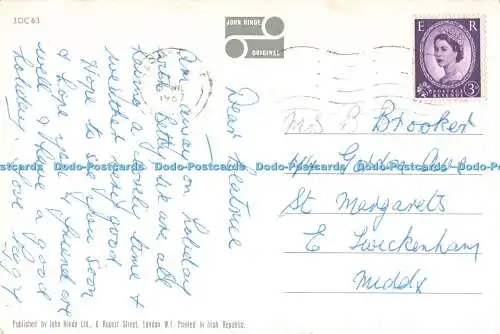 3DC63
JOHN HINDE
ORIGINAL
E R
POSTAGE
REVENUE
3D
Dear
Am away on holiday
with Betty we are all
having a lovely time &
weather very good
Hope to see you soon
& hope you & friend are
well & have a good
holiday love Peggy
Mrs B Brooker
Ave
St Margarets
E Twickenham
Middx
Dodo-Postcards Dodo-Postcards Dodo-Postcards Dodo-Postcards
Published by John Hinde Ltd., 6 Rupert Street, London W1. Printed in Irish Republic.